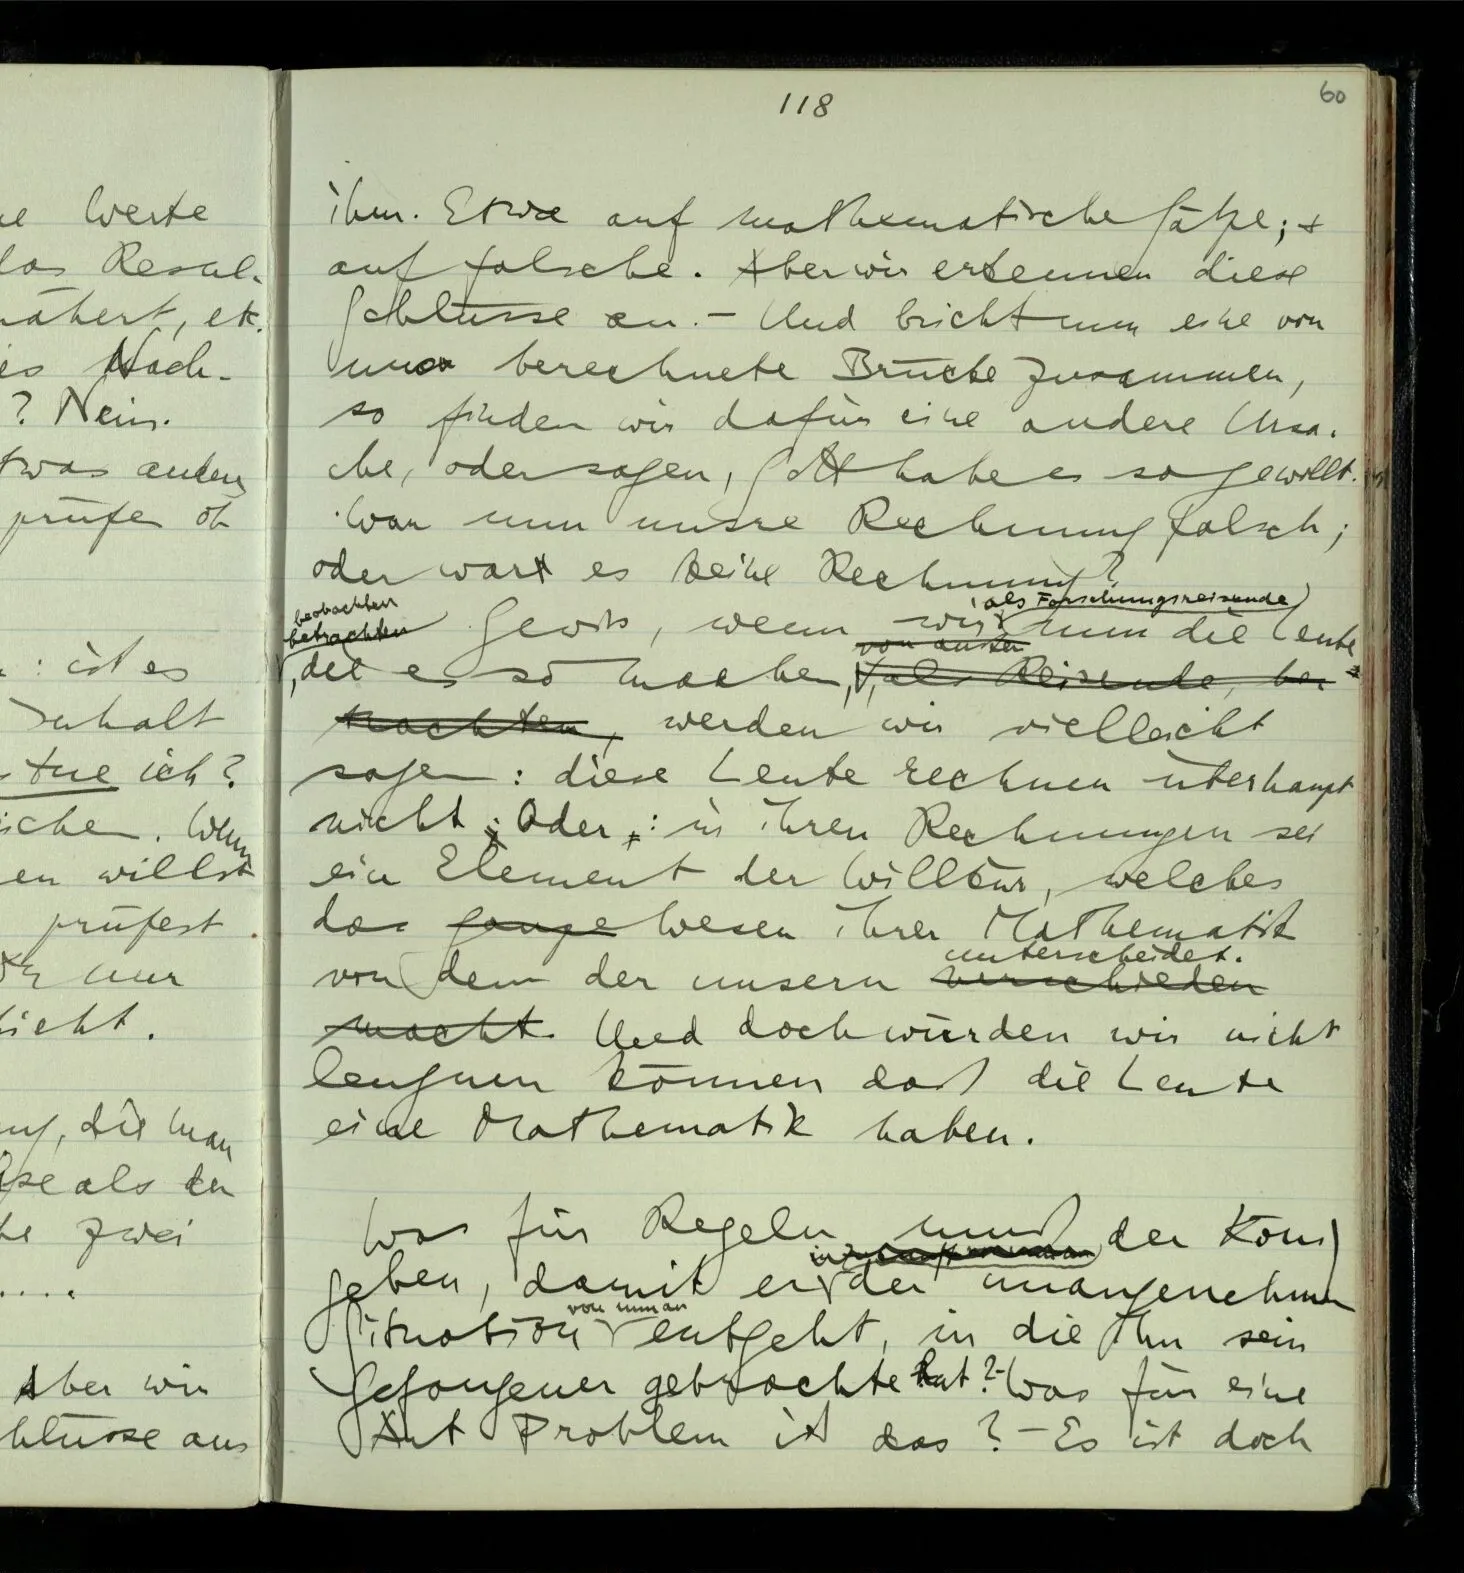 118
60
ihm. Etwa auf mathematische Sätze; &
auf falsche. Aber wir erkennen diese
Schlüsse an. – Und bricht nun eine von
uns berechnete Brücke zusammen,
so finden wir dafür eine andere Ursa-
che, oder sagen, Gott habe es so gewollt.
War nun unsre Rechnung falsch;
oder war es keine Rechnung?
als Forschungsreisende
beobachten
betrachten
Gewiß, wenn wir nun die Leute
von außen
, die es so machen, als Reisende, be-
trachten, werden wir vielleicht
sagen: diese Leute rechnen überhaupt
nicht. Oder: in ihren Rechnungen sei
ein Element der Willkür, welches
das ganze Wesen ihrer Mathematik
unterscheidet.
von dem der unsern verschieden
macht. Und doch würden wir nicht
leugnen können daß die Leute
eine Mathematik haben.
Was für Regeln muß der König
geben, damit er der unangenehmen
von nun an
Situation entgeht, in die ihn sein
Gefangener gebracht hat? – Was für eine
Art Problem ist das? – Es ist doch
Werte
das Resul-
nähert, etc.
Nach-
? Nein.
etwas anderes
prüfe ob
: ist es
Inhalt
tue ich?
. Wenn
en willst
prüfest
nur
nicht.
, die man
als der
zwei
....
Aber wir
Schlüsse aus